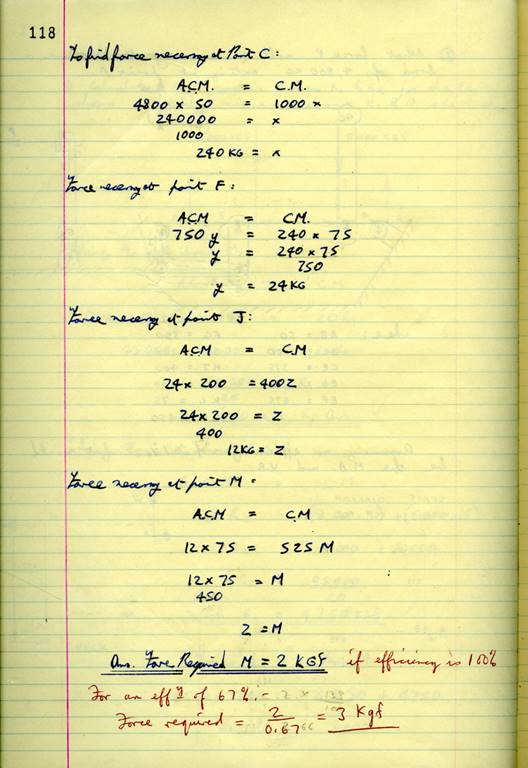 118
To find force necessary at Point C:
A.C.M. = C.M.
4800 x 50 = 1000 x
240000 = x
1000
240 KG = x
Force necessary at point F:
ACM = CM.
750 y = 240 x 75
y = 240 x 75
750
y = 24 KG
Force necessary at point J:
A.C.M = C.M
24 x 200 = 400 Z
24 x 200 = Z
400
12 KG = Z
Force necessary at point M =
A.C.M = C.M
12 x 75 = 525 M
12 x 75 = M
450
2 = M
Ans. Force Required M = 2 KGf if efficiency is 100%
For an effy of 67% :-
Force required = 2 = 3 Kgf
0.67